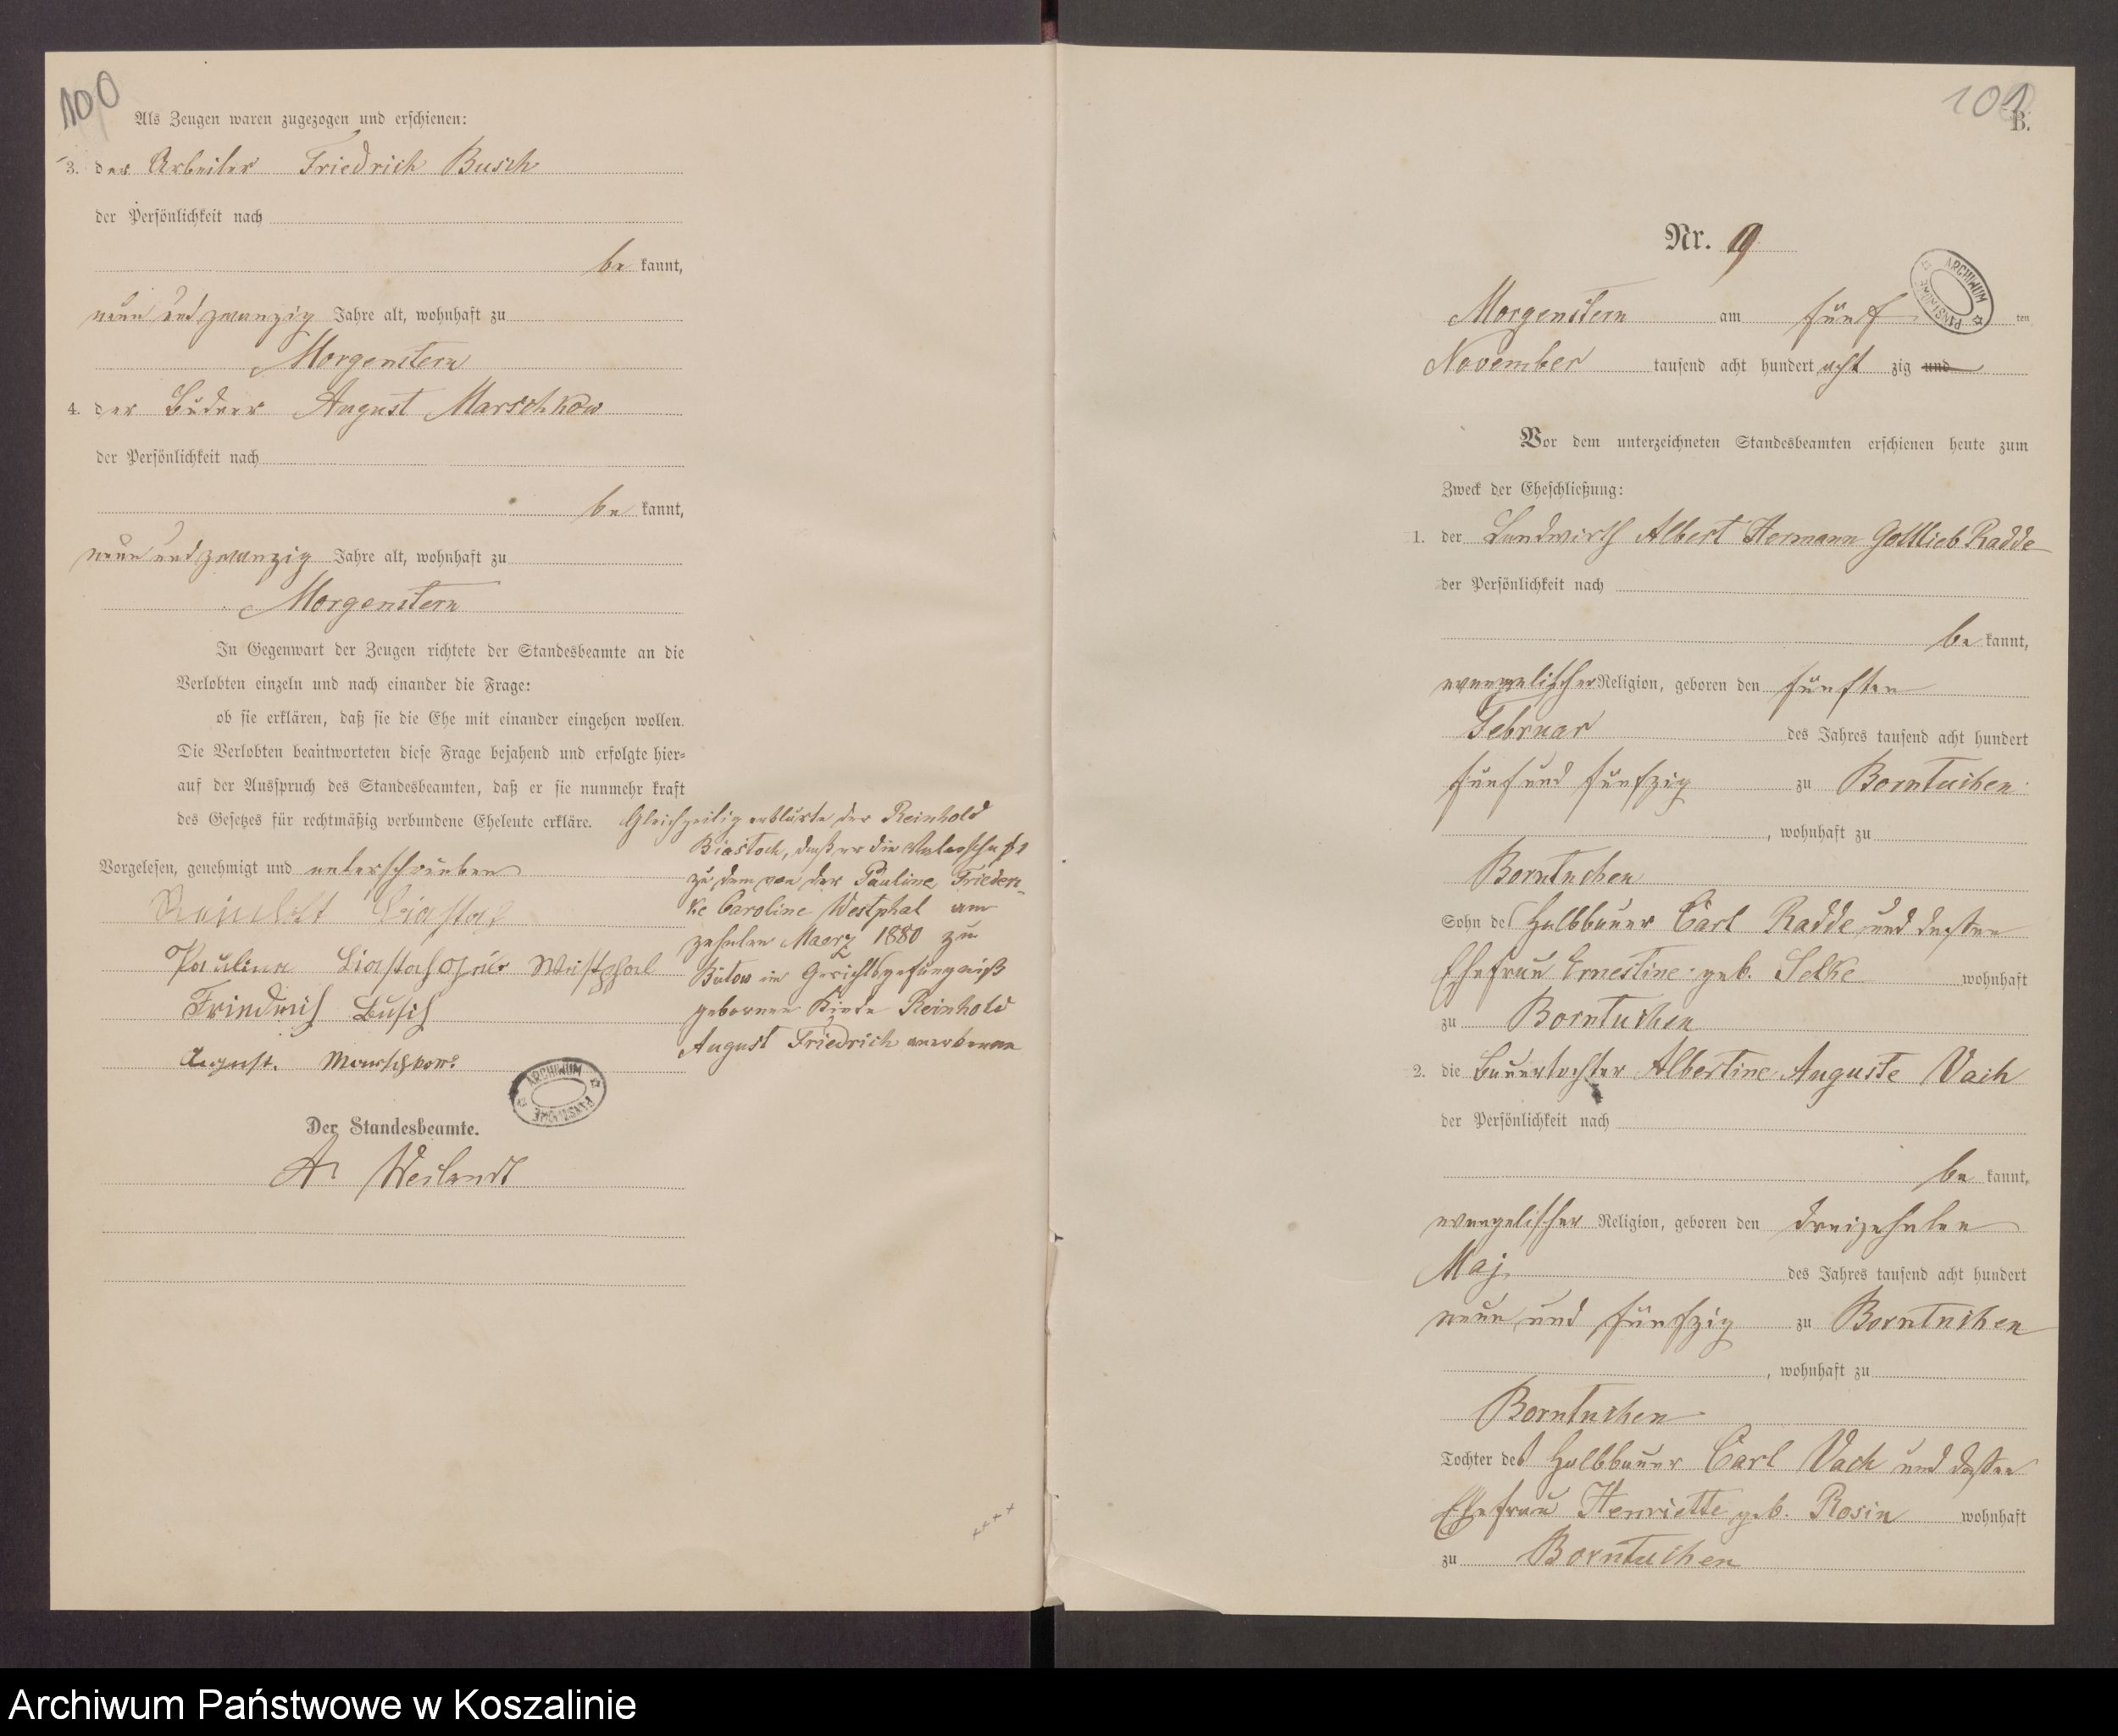 100
Als Zeugen waren zugezogen und erschienen:
3. der Arbeiter Friedrich Busch
der Persönlichkeit nach
be kannt,
neun und zwanzig Jahre alt, wohnhaft zu
Morgenstern
4. der Büdner August Marschkow
der Persönlichkeit nach
be kannt,
neun und zwanzig Jahre alt, wohnhaft zu
Morgenstern
In Gegenwart der Zeugen richtete der Standesbeamte an die
Verlobten einzeln und nach einander die Frage:
ob sie erklären, daß sie die Ehe mit einander eingehen wollen.
Die Verlobten beantworteten diese Frage bejahend und erfolgte hier-
auf der Ausspruch des Standesbeamten, daß er sie nunmehr kraft
des Gesetzes für rechtmäßig verbundene Eheleute erkläre.
Gleichzeitig erklärte der Reinhold
Biastoch, daß er die Vaterschaft
zu dem von der Pauline Friederi-
ke Caroline Westphal am
zehnten Maerz 1880 zu
Bütow im Gerichtsgefängniß
geborenen Kinde Reinhold
August Friedrich anerkenne
Vorgelesen, genehmigt und unterschrieben
Reinhold Biastoch
Pauline Biastoch geb. Westphal
Friedrich Busch
August Marschkow
ARCHIWUM PAŃSTWOWE
Der Standesbeamte.
A Weilandt
101
B.
Nr. 9
ARCHIWUM PAŃSTWOWE
Morgenstern am fünf ten
November tausend acht hundert acht zig und
Vor dem unterzeichneten Standesbeamten erschienen heute zum
Zweck der Eheschließung:
1. der Landwirth Albert Hermann Gottlieb Radde
der Persönlichkeit nach
be kannt,
evangelischer Religion, geboren den fünften
Februar des Jahres tausend acht hundert
fünf und fünfzig zu Borntuchen
, wohnhaft zu
Borntuchen
Sohn des Halbbauer Carl Radde und dessen
Ehefrau Ernestine geb. Selke wohnhaft
zu Borntuchen
2. die Bauertochter Albertine Auguste Vach
der Persönlichkeit nach
be kannt,
evangelischer Religion, geboren den dreizehnten
Maj des Jahres tausend acht hundert
neun und fünfzig zu Borntuchen
, wohnhaft zu
Borntuchen
Tochter des Halbbauer Carl Vach und dessen
Ehefrau Henriette geb. Rosin wohnhaft
zu Borntuchen
Archiwum Państwowe w Koszalinie